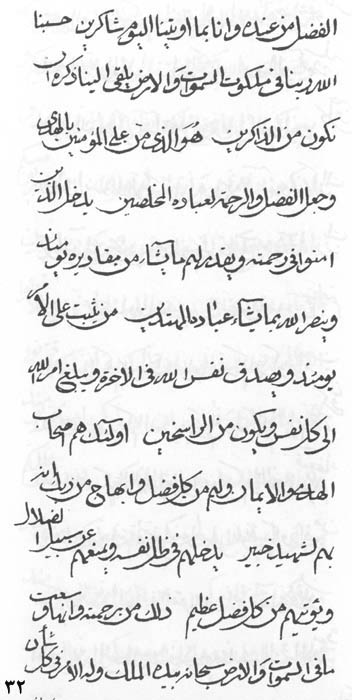 الفضل من عنده وانا بما اوتينا اليوم شاكرين حسبنا
الله ربنا في ملكوت السموات والارض يلقى الينا ذكره ان
نكون من الذاكرين هو الذي من على المؤمنين بالهدى
وجعل الفضل والرحمة لعباده المخلصين يدخل الذين
امنوا في رحمته ويقدر لهم ما يشاء من مقاديره يومئذ
وينصر الله بما يشاء عباده المهتدين من يثبت على الامر
يومئذ ويصدق نفس الله في الاخرة ويبلغ امر الله
الى كل نفس ويكون من الراسخين اولئك هم اصحاب
الهدى والايمان ولهم من كل فضل وابهاج من ربك انه
بهم لشهيد خبير يدخلهم في ظل نفسه ويمنعهم عن سبيل الضلال
ويؤتيهم من كل فضل عظيم ذلك من رحمته وانها وسعت
ما في السموات والارض سبحانه بيده الملك وله الامر في كل شأن
٣٢